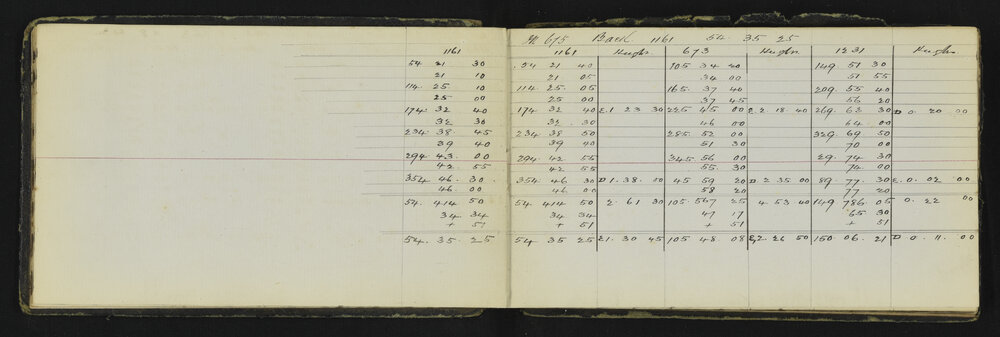 At 675 Back 1161 54 35 25
1161 1161 Heights 673 Heights 1231 Heights
54 21 30 54 21 40 105 34 20 149 51 30
21 10 21 05 34 00 51 55
114 25 10 114 25 05 165 37 40 209 55 40
25 00 25 00 37 45 56 20
174 32 40 174 32 40 E 1 23 30 225 45 00 E 2 18 40 269 63 30 D 0 20 00
32 30 32 30 46 00 64 00
234 38 45 234 38 50 285 52 00 329 69 50
39 40 39 40 51 30 70 00
294 43 00 294 42 55 345 56 00 29 74 30
42 55 42 55 55 30 74 00
354 46 30 354 46 30 D 1 38 00 45 59 20 D 2 35 00 89 77 30 E 0 02 00
46 00 46 00 58 20 77 20
54 414 50 54 414 50 2 61 30 105 567 25 4 53 40 149 786 05 0 22 00
34 34 34 34 47 17 65 30
+ 51 + 51 + 51 + 51
54 35 25 54 35 25 E 1 30 45 105 48 08 E 2 26 50 150 06 21 D 0 11 00